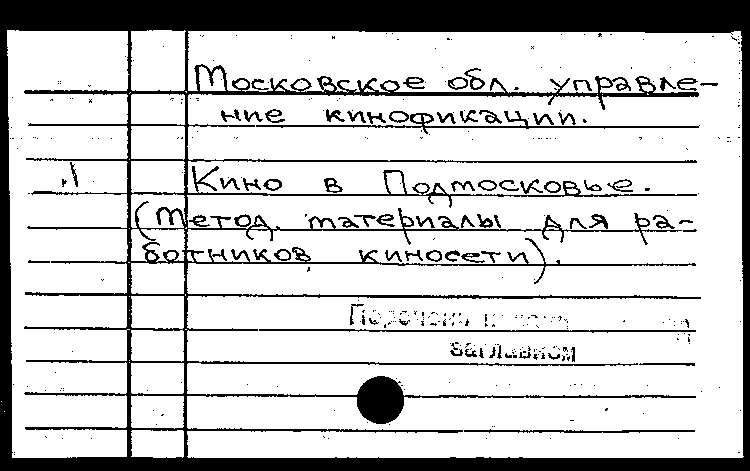 Московское обл. управле-
ние кинофикации.
1 Кино в Подмосковье.
(Метод. материалы для ра-
ботников киносети).
заглавном